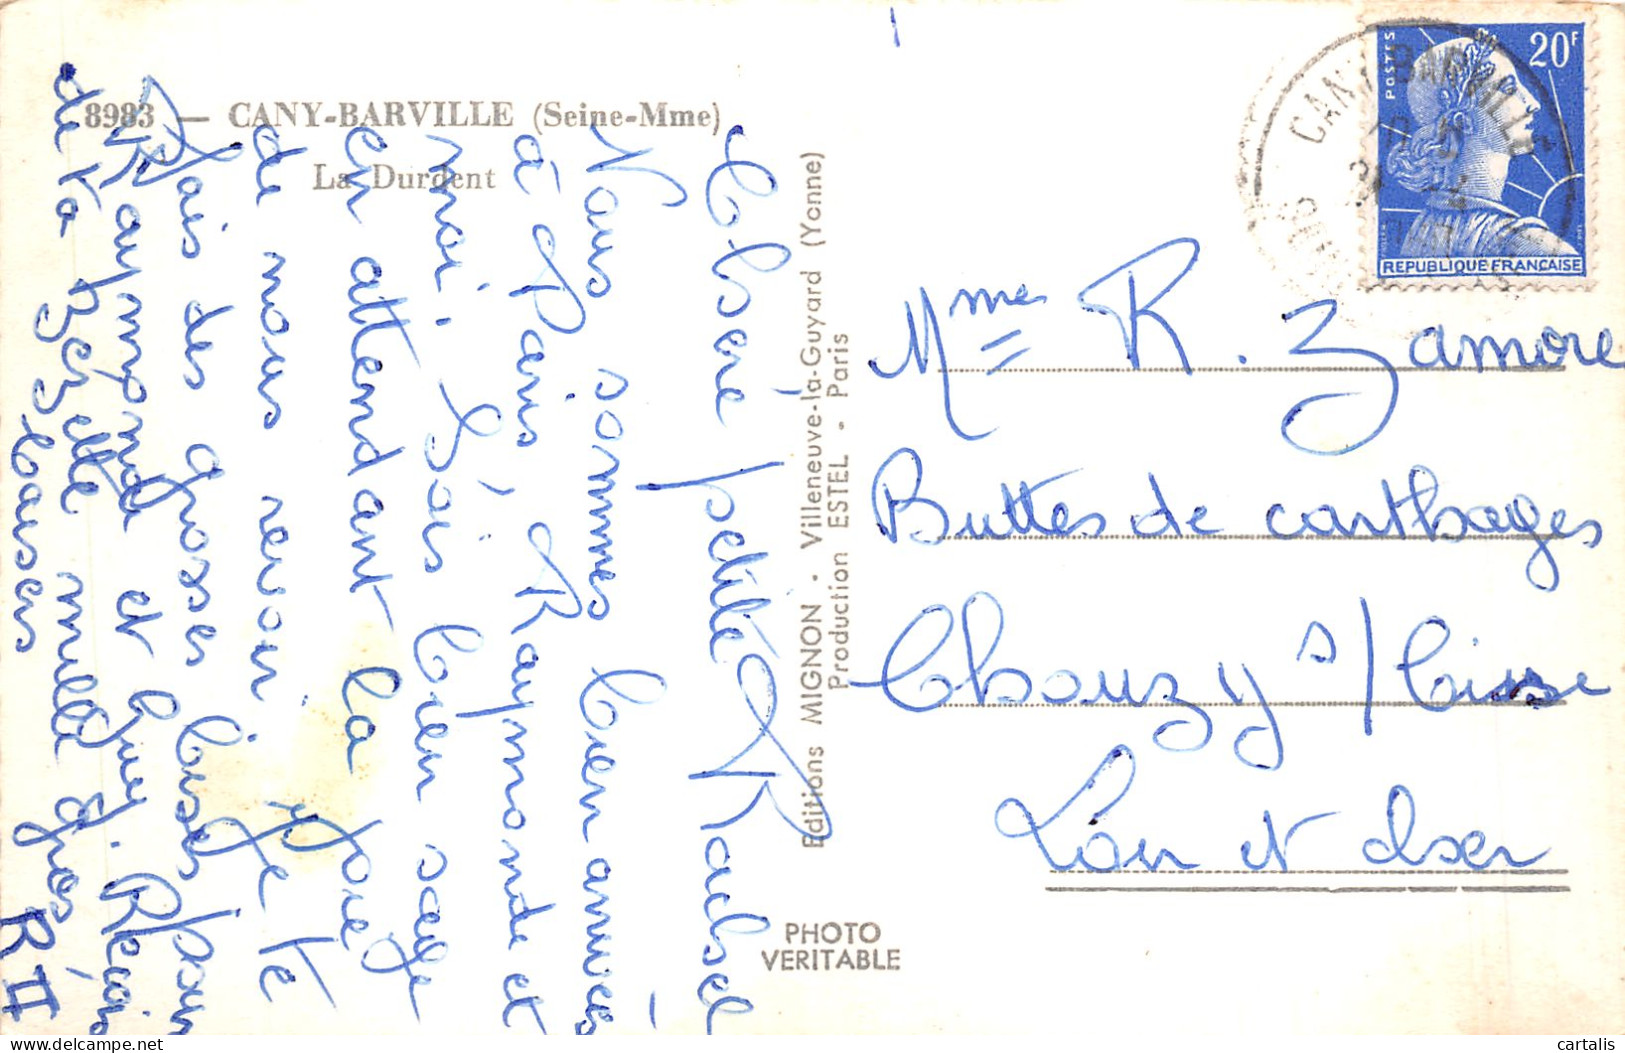 8983 — CANY-BARVILLE (Seine-Mme)
La Durdent
Chère petite Rachsel
Nous sommes bien arrivées
à Paris, Raymonde et
moi. Sois bien sage
en attendant la joie
de nous revoir. Je te
fais des grosses bises pour
Raymonde et Guy. Reçois
de ta Bezette mille & gros
baisers R II
Editions MIGNON - Villeneuve-la-Guyard (Yonne)
Production ESTEL - Paris
PHOTO
VERITABLE
POSTES
20F
REPUBLIQUE FRANCAISE
CANY BARVILLE
Mme R. Zamore
Buttes de carthages
Chouzy s/ Cisse
Loir et cher
cartalis